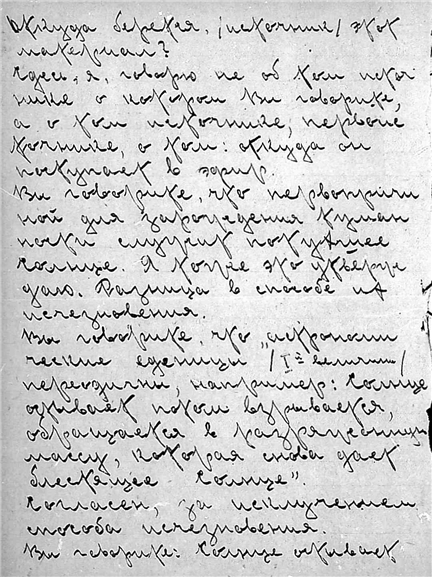 Откуда берется, /источник/ этот
материал?
Здесь, я, говорю не об том источ
нике о котором Вы говорите,
а о том источнике, первоис
точнике, о том: откуда он
поступает в эфир.
Вы говорите, что первопричи
ной для зарождения туман
ности случит потухшее
Солнце. Я тоже это утвержд
даю. Разница в способе их
исчезновения.
Вы говорите, что „астрономи
ческие еденицы /Iой величины/
переодичны, например: Солнце
остывает потом взрывается,
обращается в разряженную
массу, которая снова дает
блестящее Солнце”.
Согласен, за исключением
способа исчезновения.
Вы говорите: Солнце остывает